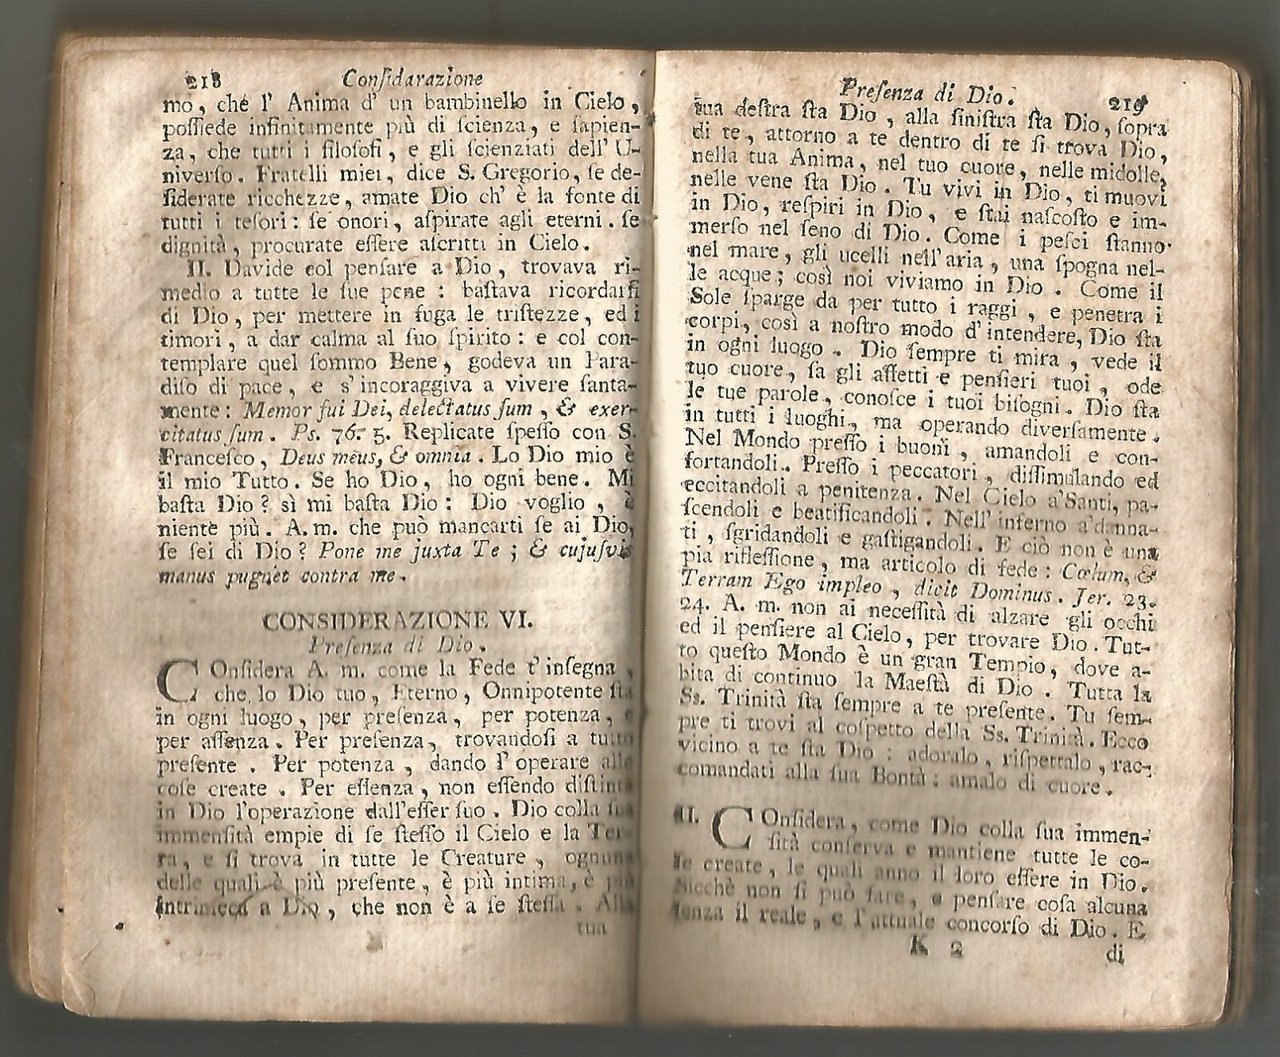 218 Conſidarazione
mo, che l' Anima d' un bambinello in Cielo,
poſſiede infinitamente più di ſcienza, e ſapien-
za, che tutti i filoſofi, e gli ſcienziati dell' U-
niverſo. Fratelli miei, dice S. Gregorio, ſe de-
ſiderate ricchezze, amate Dio ch' è la fonte di
tutti i teſori: ſe onori, aſpirate agli eterni. ſe
dignità, procurate eſſere aſcritti in Cielo.
II. Davide col penſare a Dio, trovava ri-
medio a tutte le ſue pene: baſtava ricordarſi
di Dio, per mettere in fuga le triſtezze, ed i
timori, a dar calma al ſuo ſpirito: e col con-
templare quel ſommo Bene, godeva un Para-
diſo di pace, e s' incoraggiva a vivere ſanta-
mente: Memor fui Dei, delectatus ſum, & exer-
citatus ſum. Ps. 76. 5. Replicate ſpeſſo con S.
Franceſco, Deus meus, & omnia. Lo Dio mio è
il mio Tutto. Se ho Dio, ho ogni bene. Mi
baſta Dio? sì mi baſta Dio: Dio voglio, è
niente più. A. m. che può mancarti ſe ai Dio,
ſe ſei di Dio? Pone me juxta Te; & cujuſvis
manus pugnet contra me.
CONSIDERAZIONE VI.
Preſenza di Dio.
COnſidera A. m. come la Fede t' inſegna,
che lo Dio tuo, Eterno, Onnipotente ſta
in ogni luogo, per preſenza, per potenza, e
per aſſenza. Per preſenza, trovandoſi a tutto
preſente. Per potenza, dando l' operare alle
coſe create. Per eſſenza, non eſſendo diſtinta
in Dio l'operazione dall'eſſer ſuo. Dio colla ſua
immenſità empie di ſe ſteſſo il Cielo e la Ter-
ra, e ſi trova in tutte le Creature, ognuna
delle quali è più preſente, è più intima, è più
intrinſeca a Dio, che non è a ſe ſteſſa. Alla
tua
Preſenza di Dio. 219
tua deſtra ſta Dio, alla ſiniſtra ſta Dio, ſopra
di te, attorno a te dentro di te ſi trova Dio,
nella tua Anima, nel tuo cuore, nelle midolle,
nelle vene ſta Dio. Tu vivi in Dio, ti muovi
in Dio, reſpiri in Dio, e ſtai naſcoſto e im-
merſo nel ſeno di Dio. Come i peſci ſtanno
nel mare, gli ucelli nell'aria, una ſpogna nel-
le acque; così noi viviamo in Dio. Come il
Sole ſparge da per tutto i raggi, e penetra i
corpi, così a noſtro modo d' intendere, Dio ſta
in ogni luogo. Dio ſempre ti mira, vede il
tuo cuore, ſa gli affetti e penſieri tuoi, ode
le tue parole, conoſce i tuoi biſogni. Dio ſta
in tutti i luoghi, ma operando diverſamente.
Nel Mondo preſſo i buoni, amandoli e con-
fortandoli. Preſſo i peccatori, diſſimulando ed
eccitandoli a penitenza. Nel Cielo a' Santi, pa-
ſcendoli e beatificandoli. Nell' inferno a' danna-
ti, ſgridandoli e gaſtigandoli. E ciò non è una
pia rifleſſione, ma articolo di fede: Cœlum, &
Terram Ego impleo, dicit Dominus. Jer. 23.
24. A. m. non ai neceſſità di alzare gli occhi
ed il penſiere al Cielo, per trovare Dio. Tut-
to queſto Mondo è un gran Tempio, dove a-
bita di continuo la Maeſtà di Dio. Tutta la
Ss. Trinità ſta ſempre a te preſente. Tu ſem-
pre ti trovi al coſpetto della Ss. Trinità. Ecco
vicino a te ſta Dio: adoralo, riſpettalo, rac-
comandati alla ſua Bontà: amalo di cuore.
II. COnſidera, come Dio colla ſua immen-
ſità conſerva e mantiene tutte le co-
ſe create, le quali anno il loro eſſere in Dio.
Sicchè non ſi può fare, o penſare coſa alcuna
ſenza il reale, e l'attuale concorſo di Dio. E
K 2 di